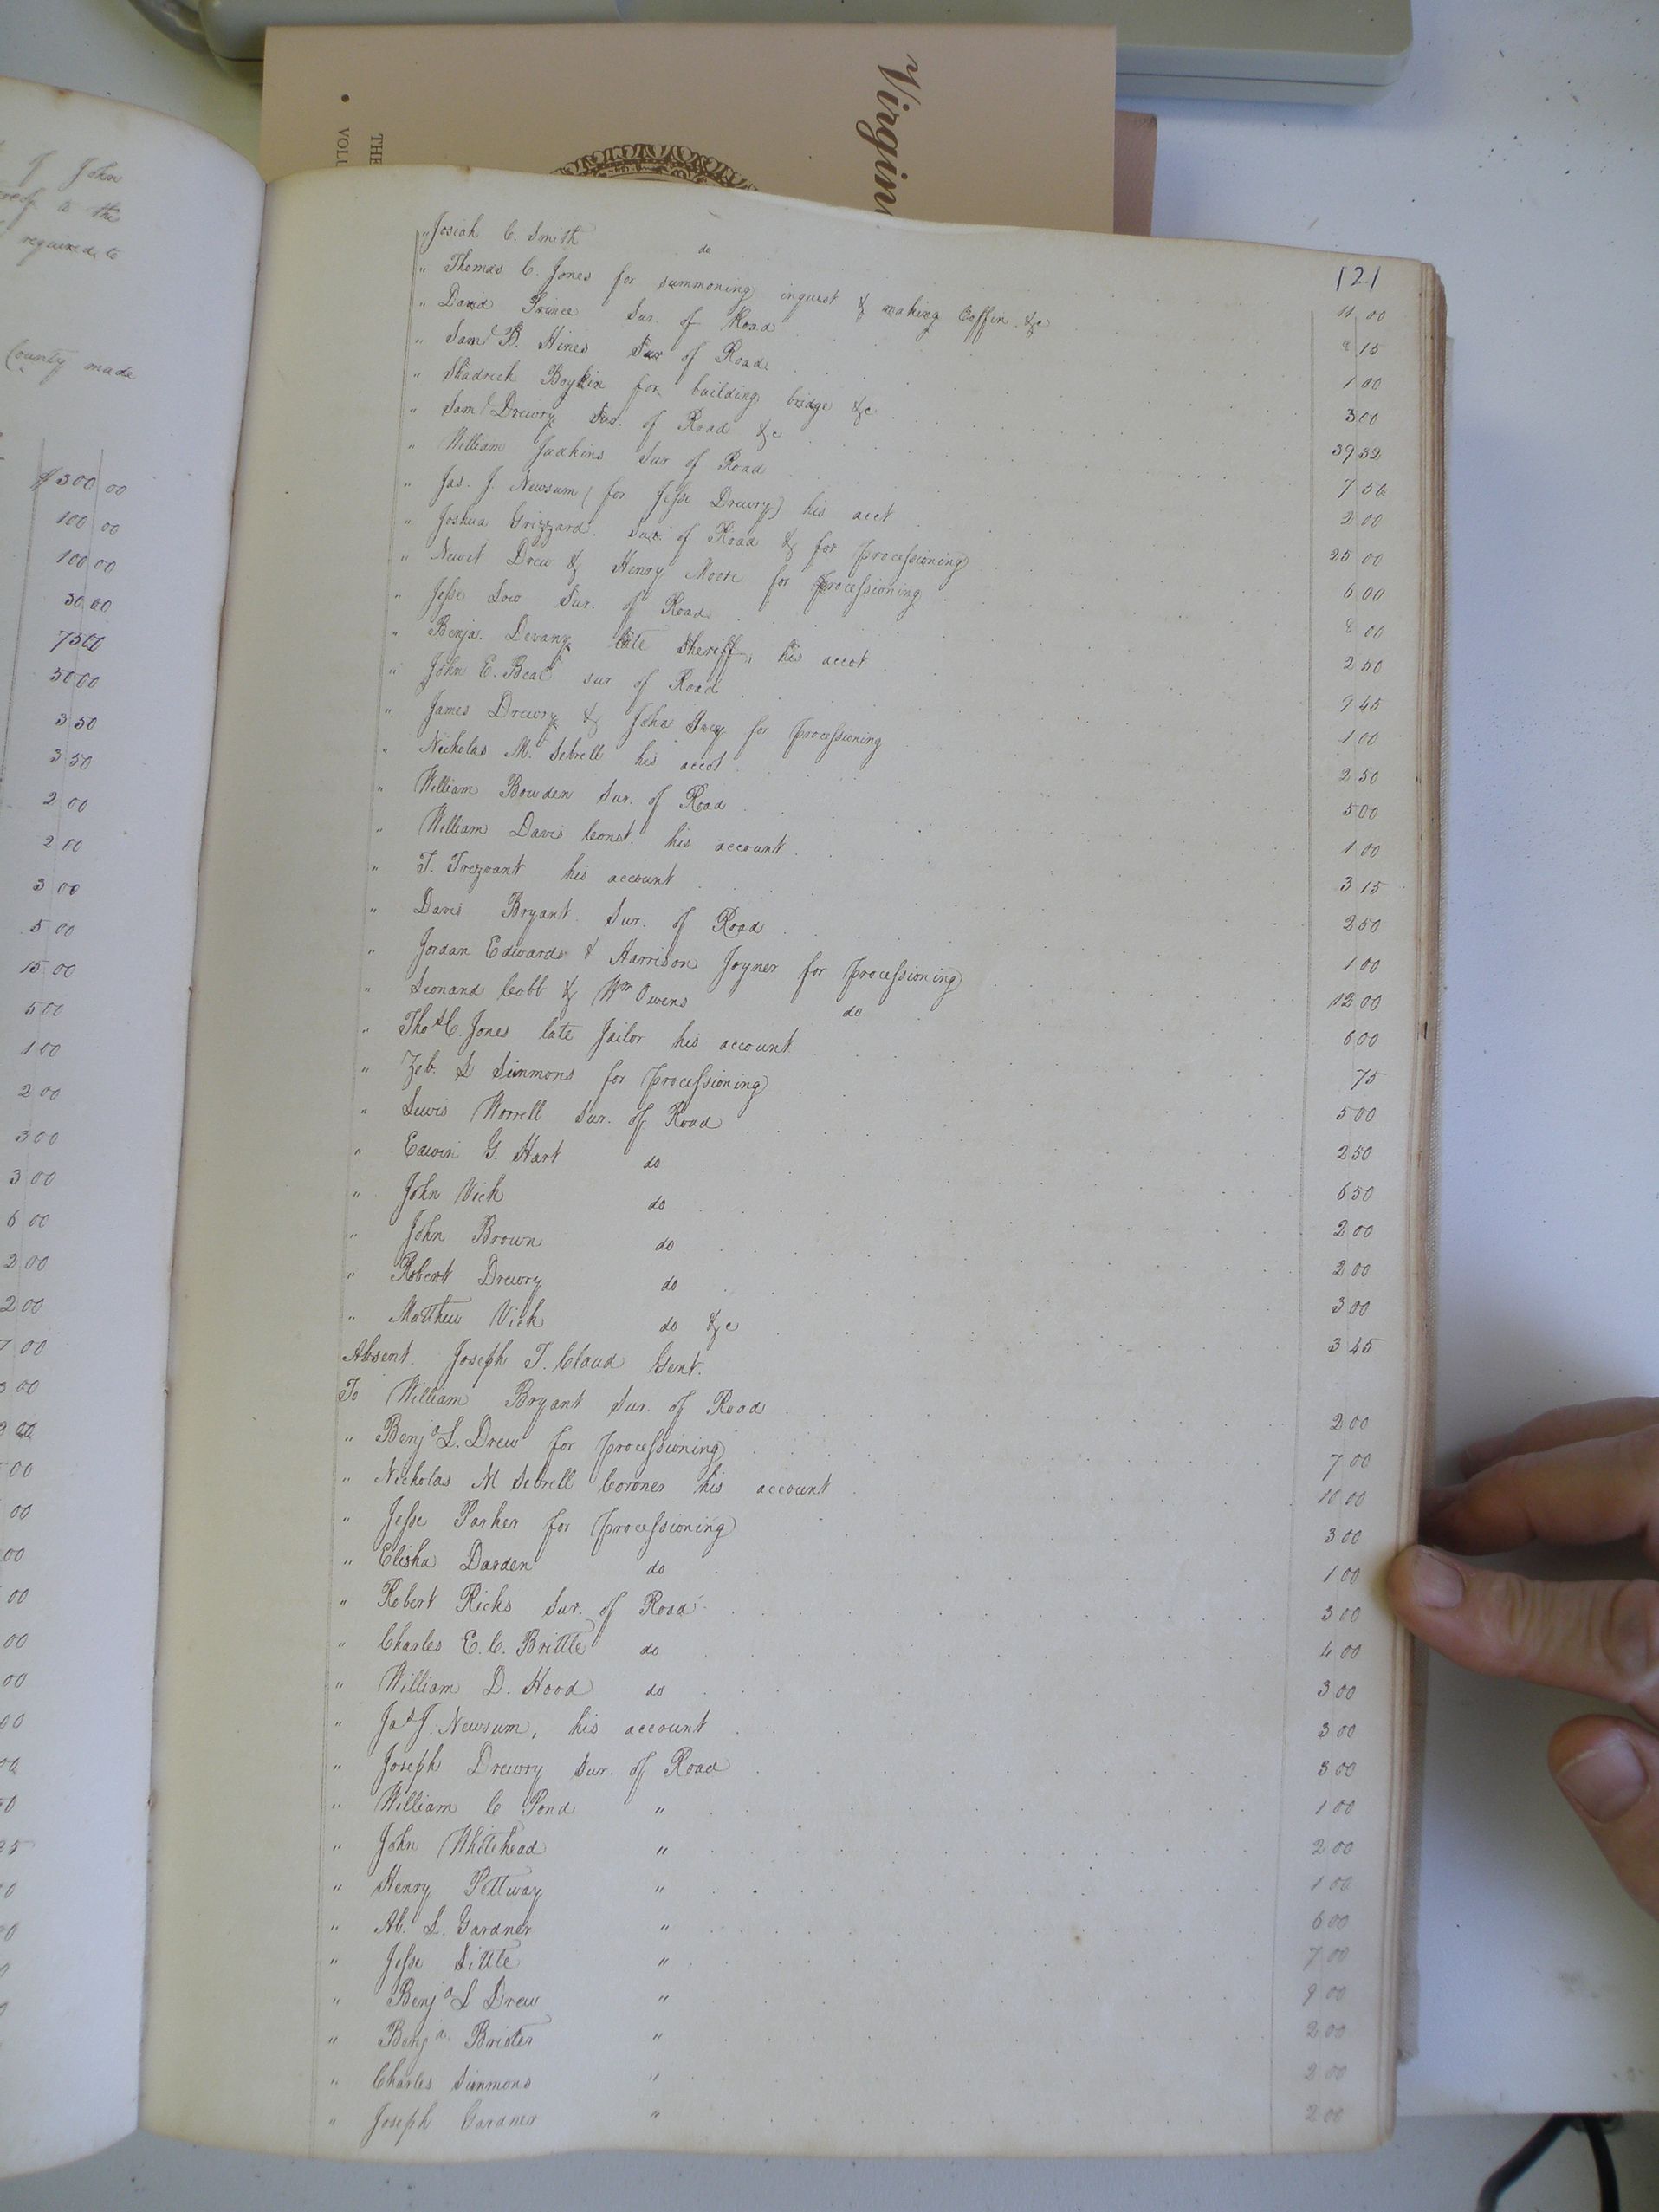 Virgin
THE
VOLU
of John
to the
required to
County made
$300 00
100 00
100 00
30 00
75 00
50 00
3 50
3 50
2 00
2 00
3 00
5 00
15 00
5 00
1 00
2 00
3 00
3 00
6 00
2 00
2 00
121
" Josiah C. Smith do 11 00
" Thomas C. Jones for summoning inquest & making Coffin &c 8 15
" David Prince Sur. of Road 1 00
" Saml B. Hines Sur of Road 3 00
" Shadrech Boykin for building bridge &c 39 32
" Saml Drewry Sur. of Road &c 7 50
" William Judkins Sur of Road 2 00
" Jas. J. Newsum (for Jesse Drewry) his acct 25 00
" Joshua Grizzard Sur. of Road & for processioning 6 00
" Newit Drew & Henry Moore for processioning 8 00
" Jesse Low Sur. of Road 2 50
" Benja. Devany late Sheriff, his accot 9 45
" John E. Beal sur of Road 1 00
" James Drewry & John Gray for processioning 2 50
" Nicholas M. Sebrell his accot 5 00
" William Bowden Sur. of Road 1 00
" William Davis Const. his account 3 15
" T. Trezvant his account 2 50
" Davis Bryant Sur. of Road 1 00
" Jordan Edwards & Harrison Joyner for processioning 12 00
" Leonard Cobb & Wm Owens do 6 00
" Thos C. Jones late Jailor his account 75
" Zeb. S Simmons for processioning 5 00
" Lewis Worrell Sur. of Road 2 50
" Edwin G. Hart do 6 50
" John Vick do 2 00
" John Brown do 2 00
" Robert Drewry do 3 00
" Matthew Vick do &c 3 45
Absent. Joseph T. Claud Gent.
To William Bryant Sur. of Road 2 00
" Benja L. Drew for processioning 7 00
" Nicholas M Sebrell Coroner his account 10 00
" Jesse Parker for processioning 3 00
" Elisha Darden do 1 00
" Robert Ricks Sur. of Road 3 00
" Charles E. C. Brittle do 4 00
" William D. Hood do 3 00
" Jas J. Newsum, his account 3 00
" Joseph Drewry Sur. of Road 3 00
" William C Pond " 1 00
" John Whitehead " 2 00
" Henry Pettway " 1 00
" Al. S. Gardner " 6 00
" Jesse Little " 7 00
" Benja L Drew " 9 00
" Benja. Brister " 2 00
" Charles Simmons " 2 00
" Joseph Gardner " 2 00